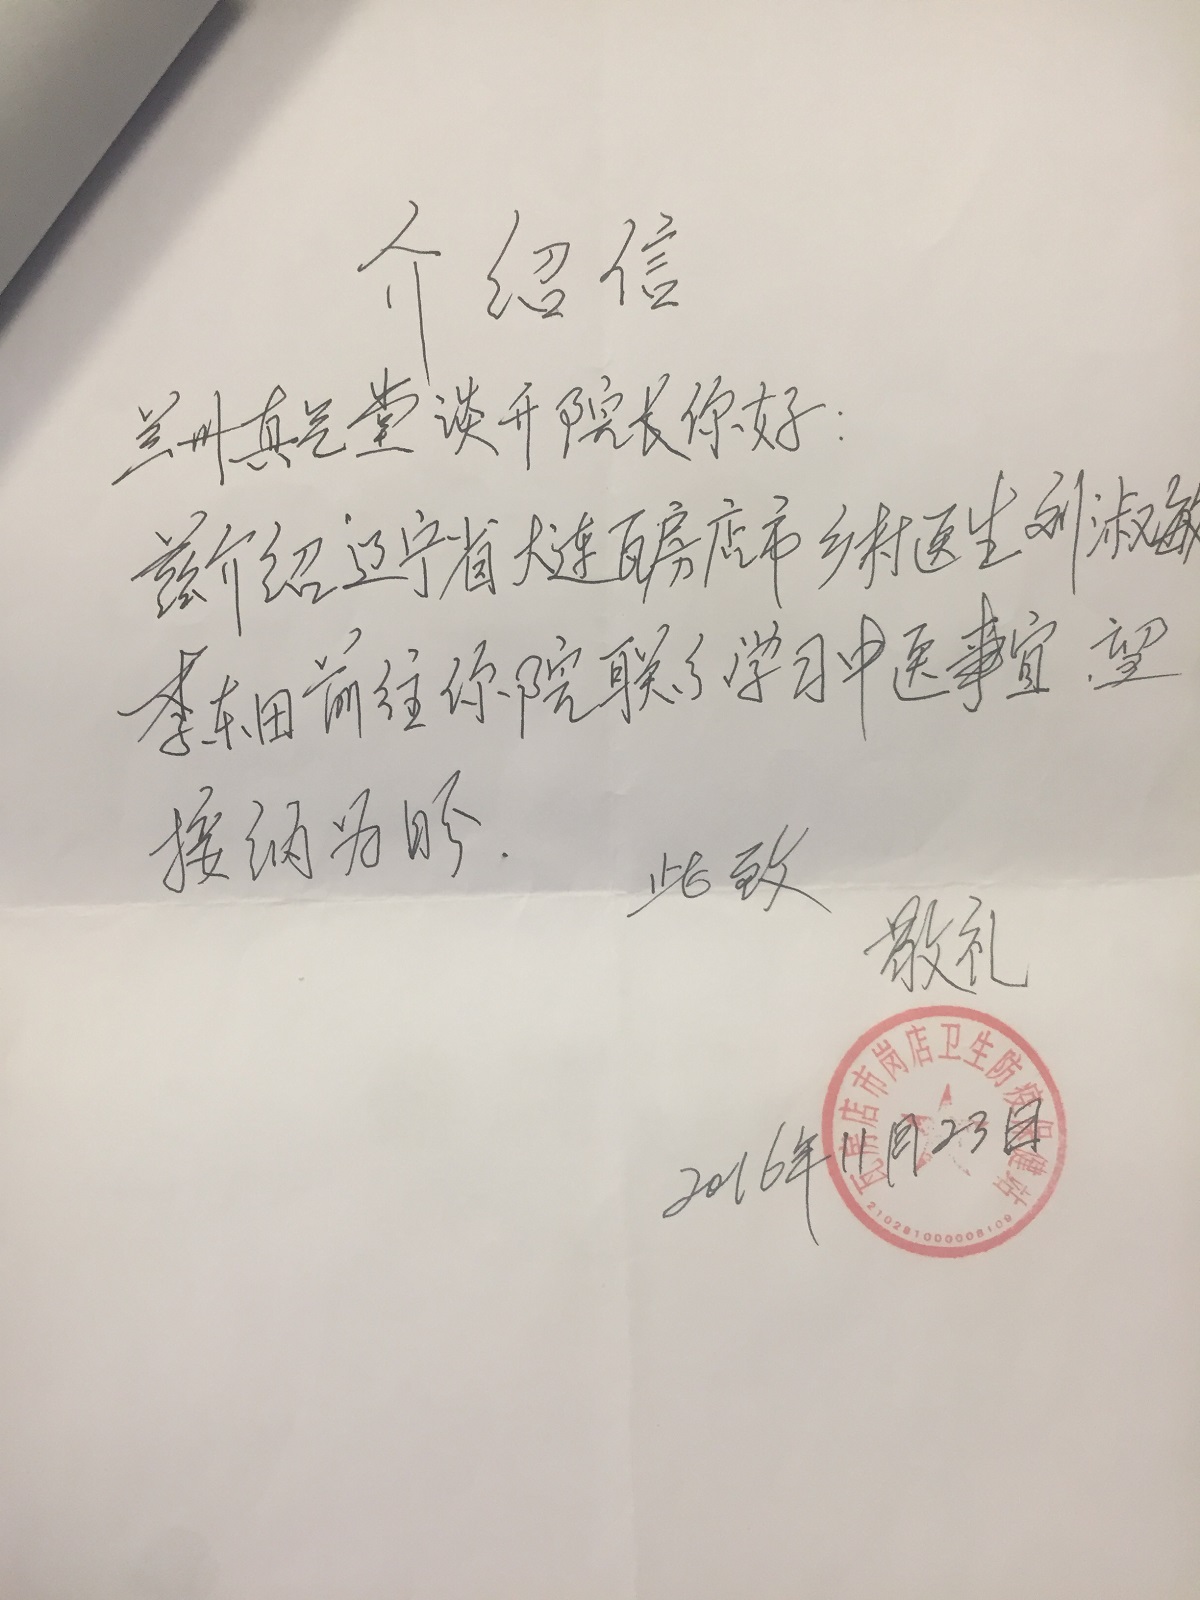 介绍信
兰州真气堂谈开院长你好：
兹介绍辽宁省大连瓦房店市乡村医生刘淑敏
李东田前往你院联系学习中医事宜.望
接纳为盼.
此致
敬礼
瓦房店市岗店卫生防疫保健站
2016年11月23日
2102810000008109